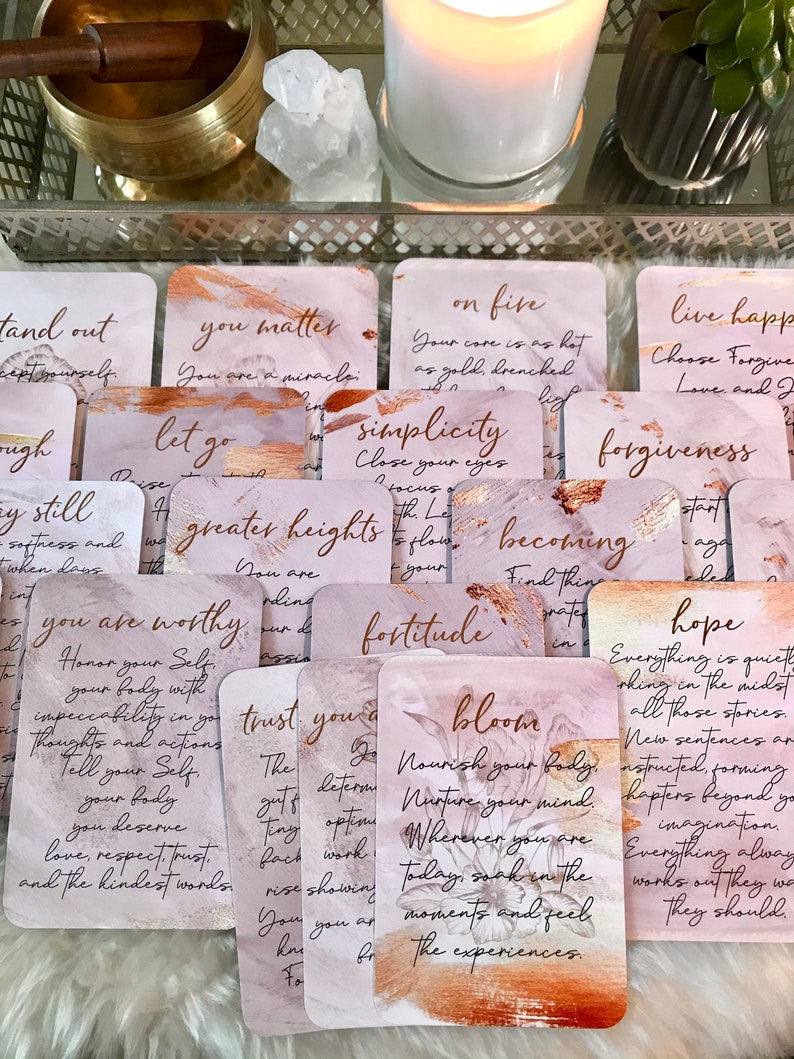 tand out
cept yourself.
you matter
You are a miracle;
on fire
Your core is as hot
as gold, drenched
live happ
Choose Forgive
Love, and J
ough
let go
simplicity
Close your eyes
focus o
th. Le
s flow
forgiveness
start
aga
eeded
ay still
softness and
when days
in
greater heights
You are
rdina
ur d
assion
becoming
Find thin
gratef
in a
you are worthy
Honor your Self,
your body with
impeccability in yo
thoughts and actions
Tell your Self,
your body
you deserve
love, respect, trust,
and the kindest words.
fortitude
hope
Everything is quietl
rking in the midst
all those stories.
New sentences are
nstructed, forming
hapters beyond yo
imagination.
Everything alway
works out they wa
they should.
trust
The
gut f
tiny
back
rise
You
kno
Fo
you a
Yo
determ
optim
work
showing
you a
fr
bloom
Nourish your body,
Nurture your mind.
Wherever you are
today, soak in the
moments and feel
the experiences.